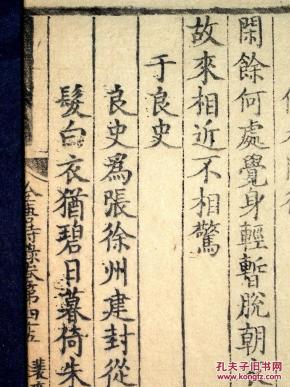 閑餘何處覺身輕暫脫朝衣
故來相近不相驚
于良史
良史爲張徐州建封從
髮白衣猶碧日暮倚朱
全唐詩錄卷第四五
孔夫子旧书网